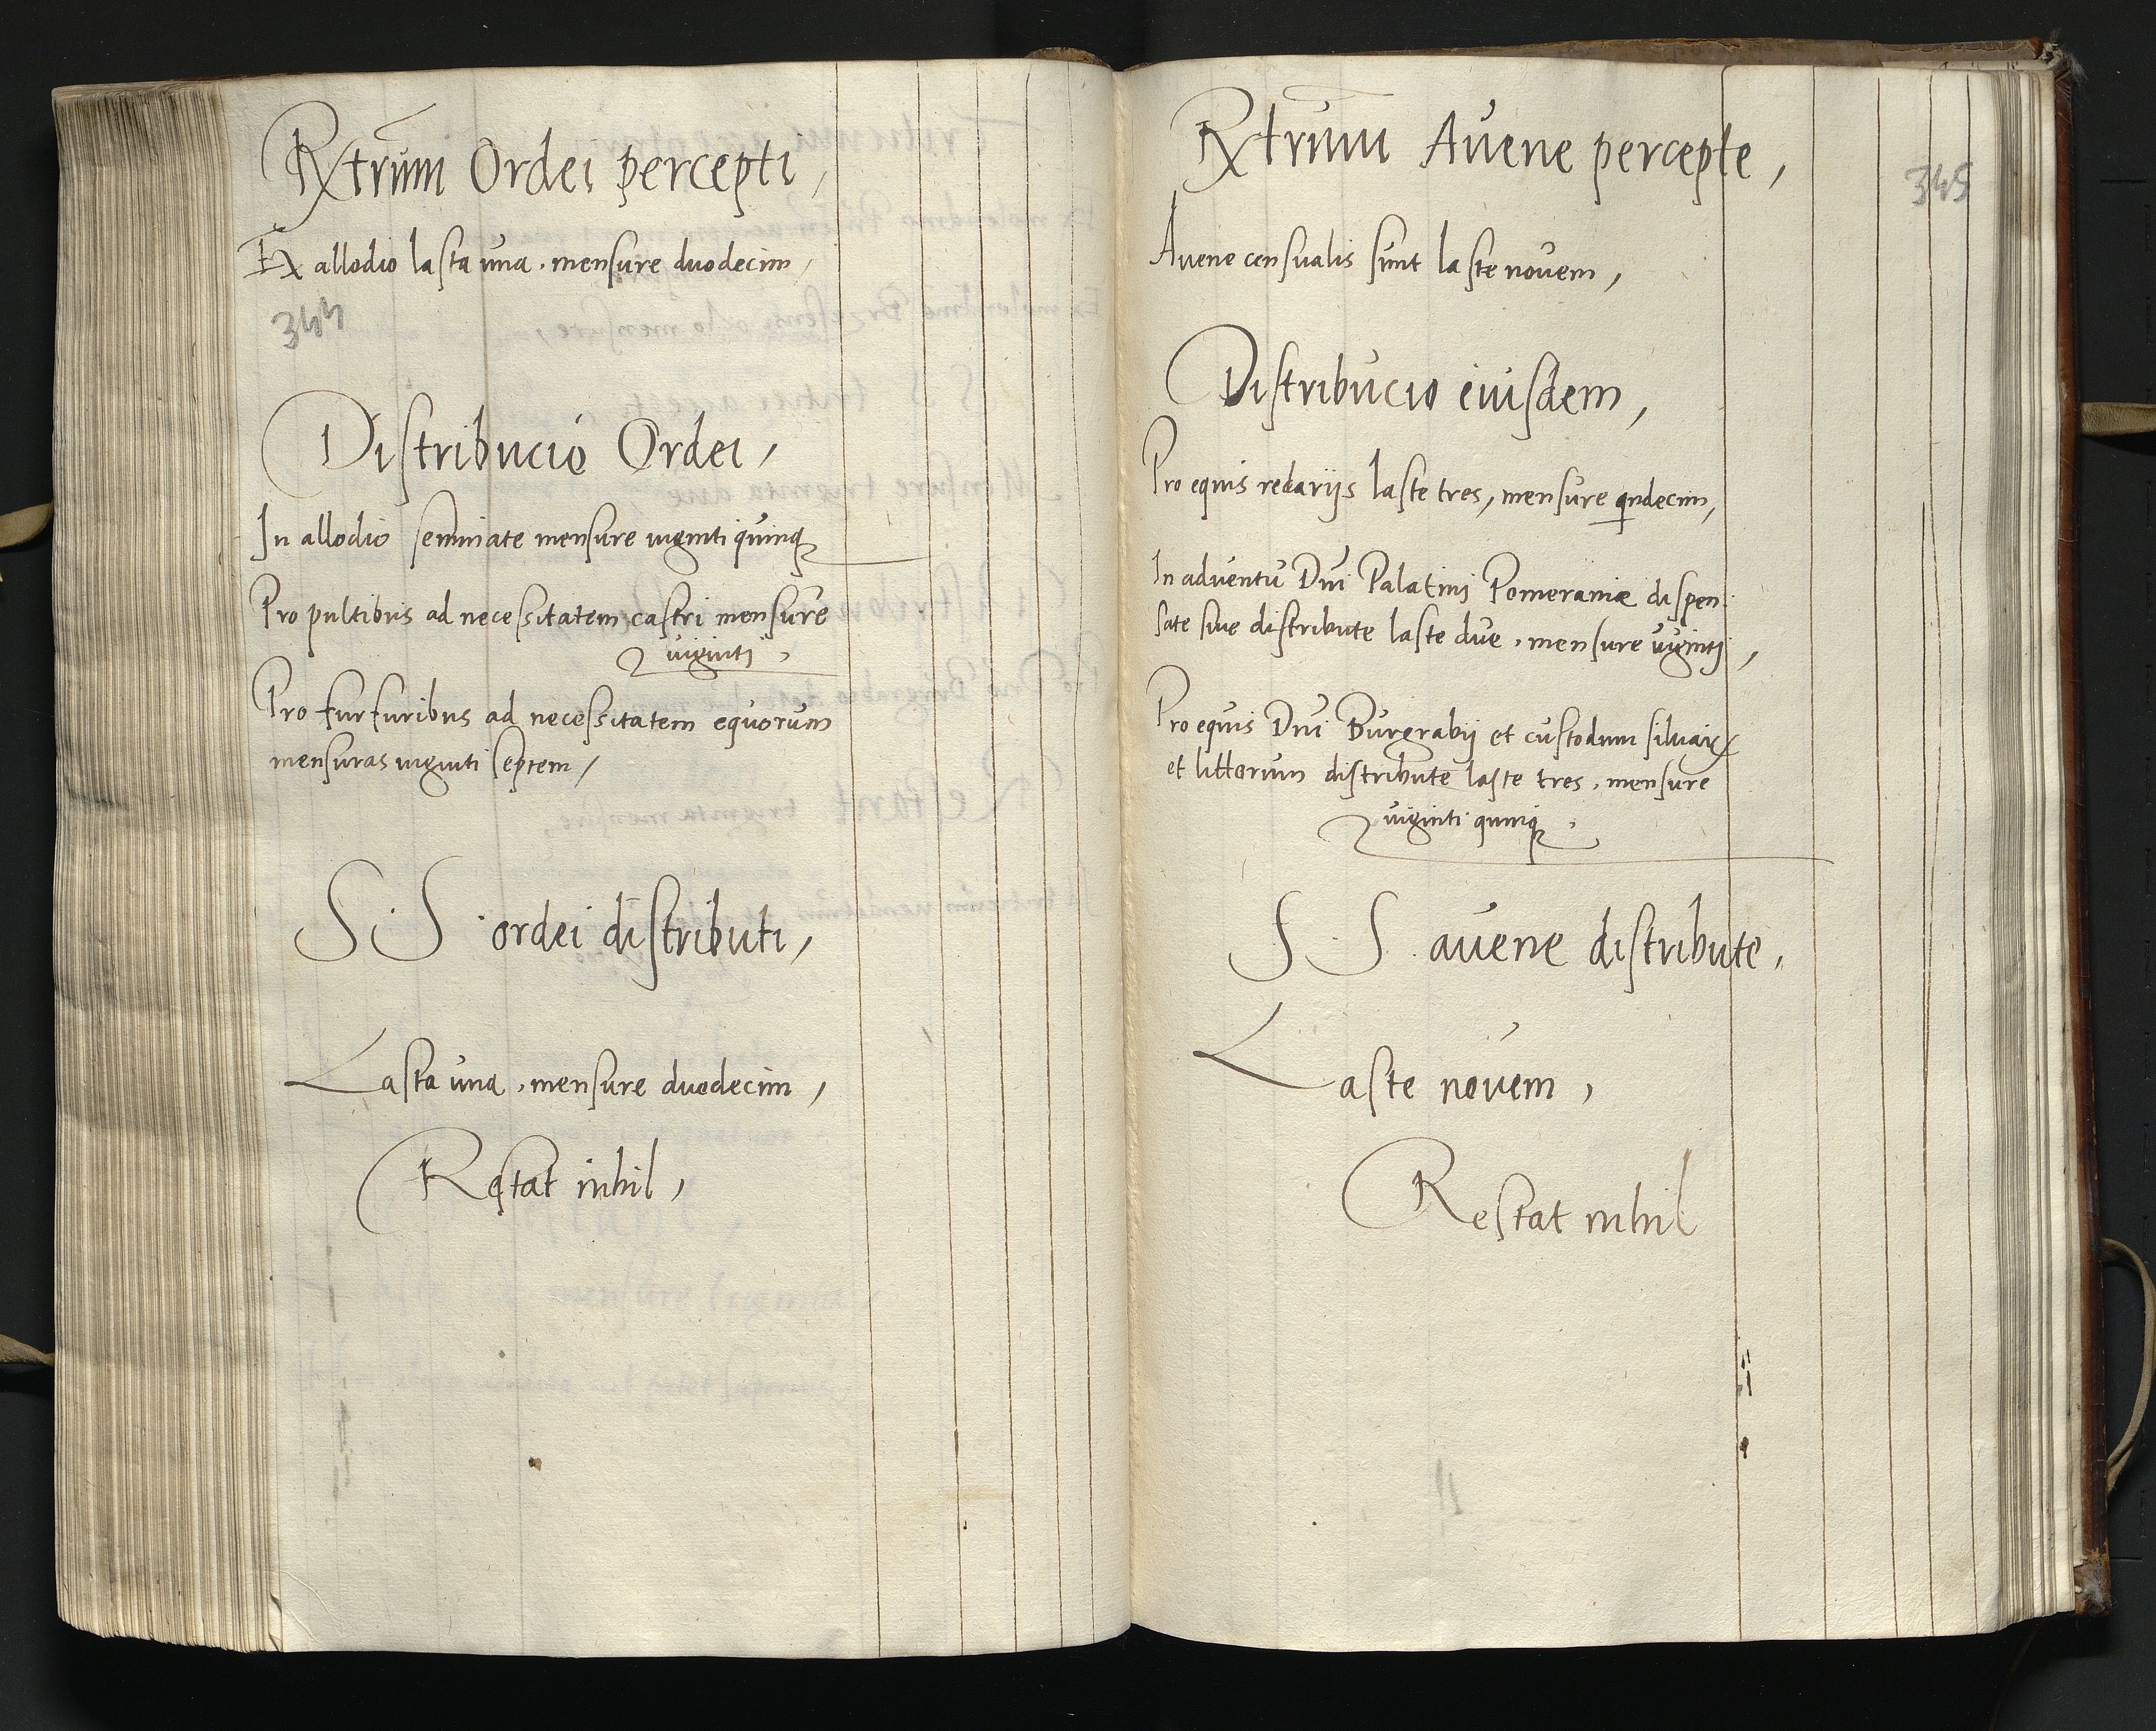 Rxtrum Ordei percepti,
Ex allodio lasta una, mensure duodecim,
344
Distribucio Ordei,
In allodio seminate mensure viginti quinq
Pro pultibus ad necessitatem castri mensure
viginti,
Pro furfuribus ad necessitatem equorum
mensuras viginti septem,
S S ordei distributi,
Lasta una, mensure duodecim,
Restat nihil,
Rxtrum Avene percepte,
345
Avene censualis sunt laste novem,
Distribucio eiusdem,
Pro equis redariis laste tres, mensure qndecim,
In adventu Dni Palatini Pomeraniæ dispen:
sate sive distribute laste due, mensure viginti,
Pro equis Dni Burgrabij et custodum silvar
et littorum distribute laste tres, mensure
viginti quinq,
S S avene distribute,
Laste novem,
Restat nihil